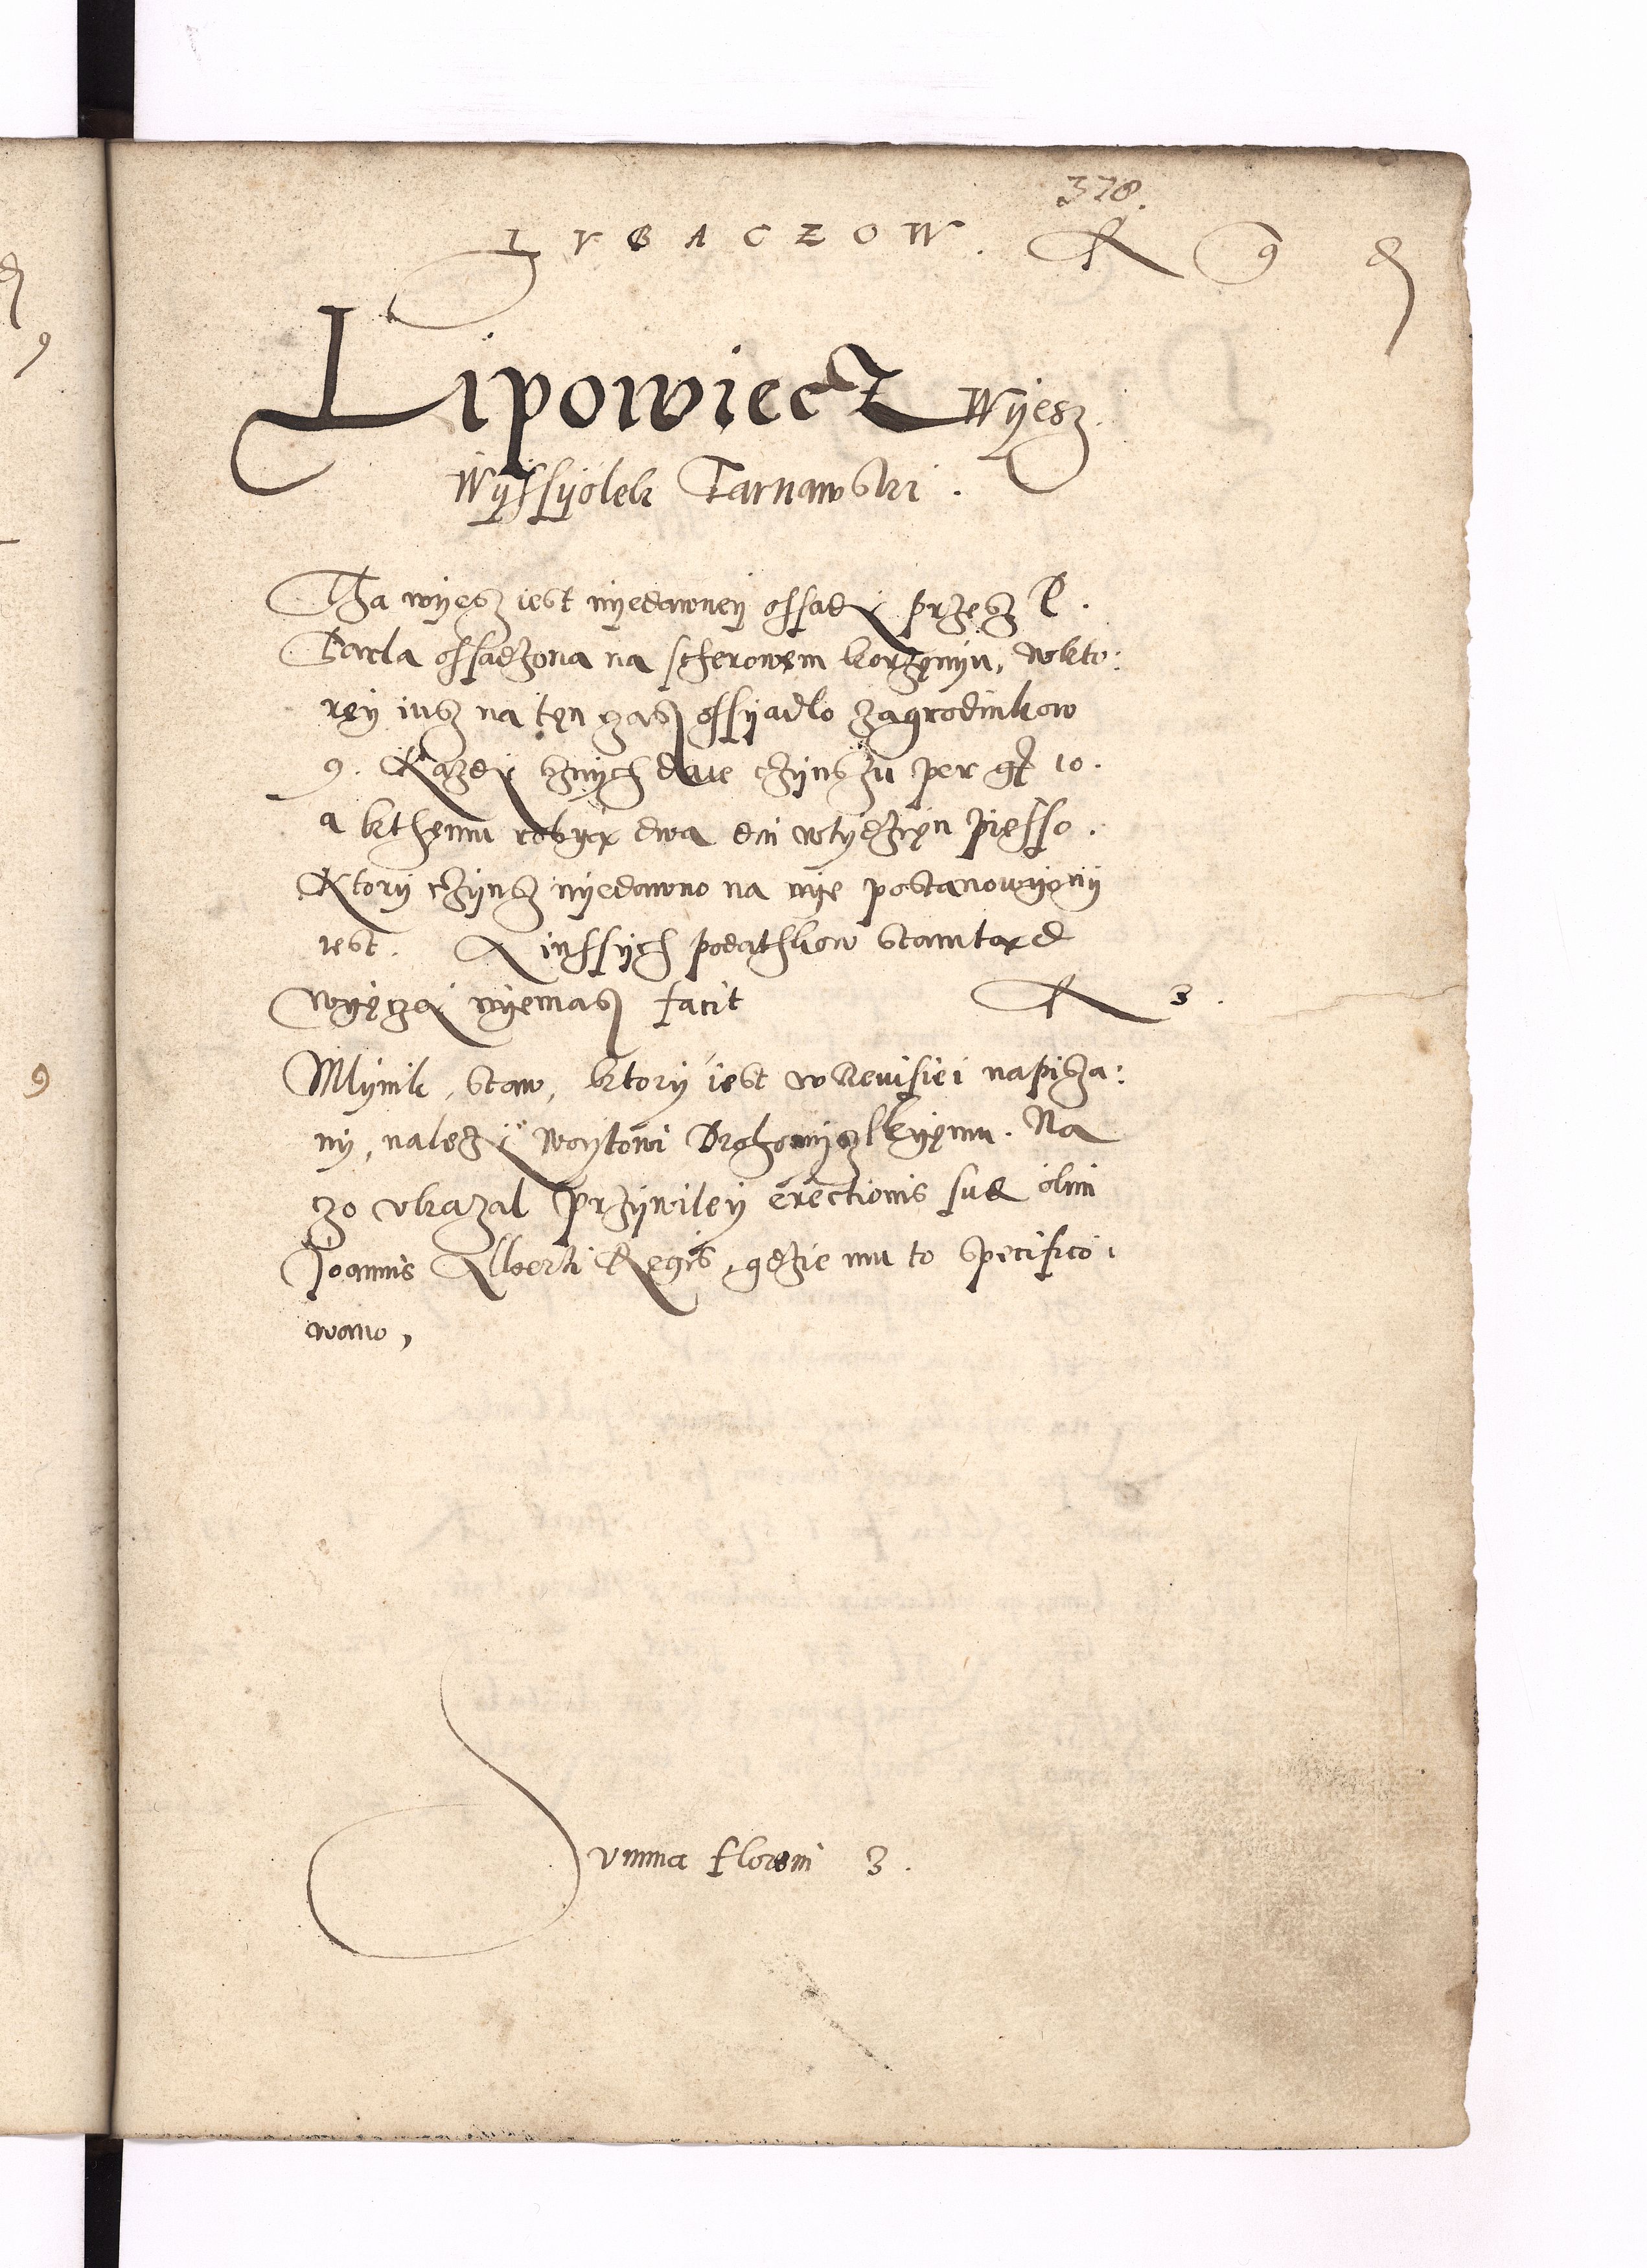 378.
LVBACZOW. R g d
Lipowiecz Wÿesz.
Wÿssÿolek Tarnawski.
Tha wÿesz iest nÿedawneÿ ossady przesz P.
Tarla ossadzona na scherowem korzenÿu, wkto:
reÿ iusz na ten czas ossÿadlo zagrodnikow
9. Kazdy sznÿch daie czÿnszu per gr 10.
a kthemu robÿą dwa dni wtÿdzien piesso.
Ktorÿ czÿnsz nÿedawno na nÿe postanowÿonÿ
iest. A inssÿch podathkow stamtąd
wÿęczeÿ nÿemasz facit R 3.
Mlÿnik, staw, ktorÿ iest w Revisiei napisza:
nÿ, nalezÿ woÿtowi Drohomÿszlskÿemu. Na
czo vkazal przÿwileÿ erectionis suę olim
Joannis Alberti Regis, gdzie mu to specifico:
wano,
Summa floreni 3.
9